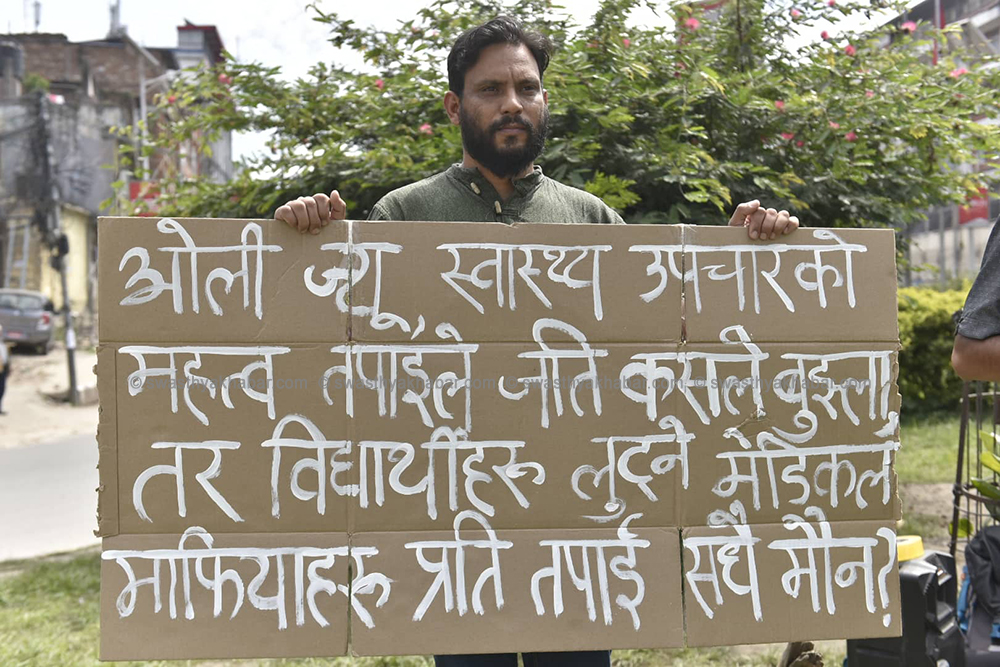 ओली ज्यू स्वास्थ्य उपचारको
महत्व तपाईंले जति कसले बुझ्ला,
तर विद्यार्थीहरू लुट्ने मेडिकल
माफियाहरू प्रति तपाई सधैं मौन?
©swasthyakhabar.com ©swasthyakhabar.com ©swasthyakhabar.com ©swasthyakhabar.com